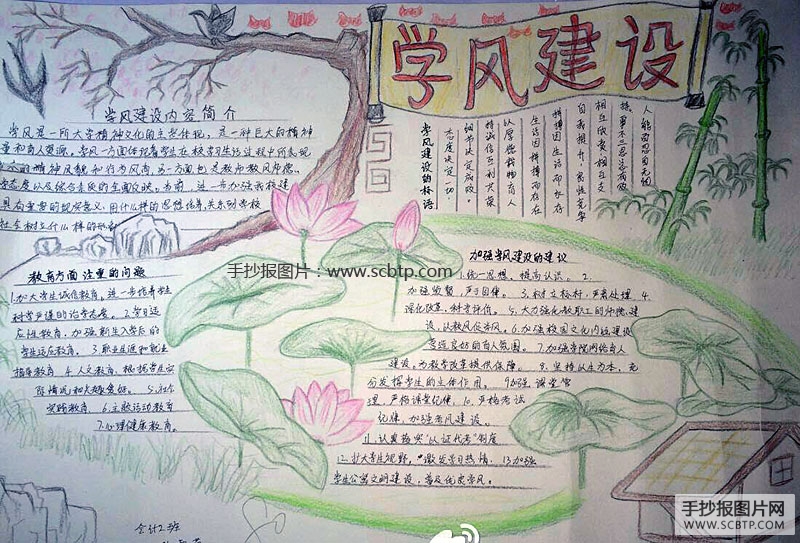 学风建设
学风建设内容简介
学风是一所大学精神文化的主要体现，是一种巨大的精神
量和育人资源。学风一方面体现着学生在校学习生活过程中所表现
的精神风貌和行为风尚，另一方面也是教师教风师德、
态度以及综合素质的全面反映。当前，进一步加强我校建
具有重要的现实意义。用什么样的思想培养，关系到学校
学风建设的标语
态度决定一切
细节决定成败。
精诚合作 互利共荣
以厚德载物育人
生活因拼搏而存在
拼搏因生活而永存
自我提升、良性竞争
相互欣赏、相互支
教育方面注重的问题
1.加大学生诚信教育，进一步培养学生
科学严谨的治学态度。2.学习适
应性教育，加强新生入学后的
学生适应教育。3.职业生涯和就业
指导教育 4.人文教育，根据学生实
际情况和大
5.社会
实践教育. 6.主题活动教育
7.心理健康教育。
手抄报图片：www.scbtp.com
加强学风建设的建议
1.统一思想，提高认识。2.
加强监督，严于自律。3.树立标杆，严肃处理。4.
深化改革，科学评价。5.大力强化教职工的师德建
设，以教风促学风。6.加强校园文化内涵建设
营造良好的育人氛围。7.加强学院网络育人
建设，为教学改革提供保障。8.坚持以生为本，充
分发挥学生的主体作用。9加强课堂管
理，严格课堂纪律，10.严格考试
纪律，加强考风建设。
11.认真落实“认证代考”制度
12.扩大学生视野，激发学习热情，13加强
学生公寓文明建设，普及优质学风。
会计2班
手抄报图片网
WWW.SCBTP.COM